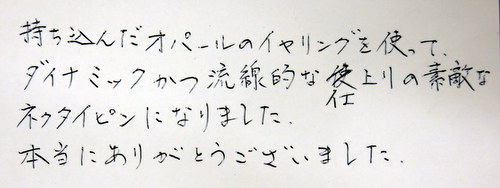 持ち込んだオパールのイヤリングを使って、
ダイナミックかつ流線的な仕上りの素敵な
ネクタイピンになりました.
本当にありがとうございました.